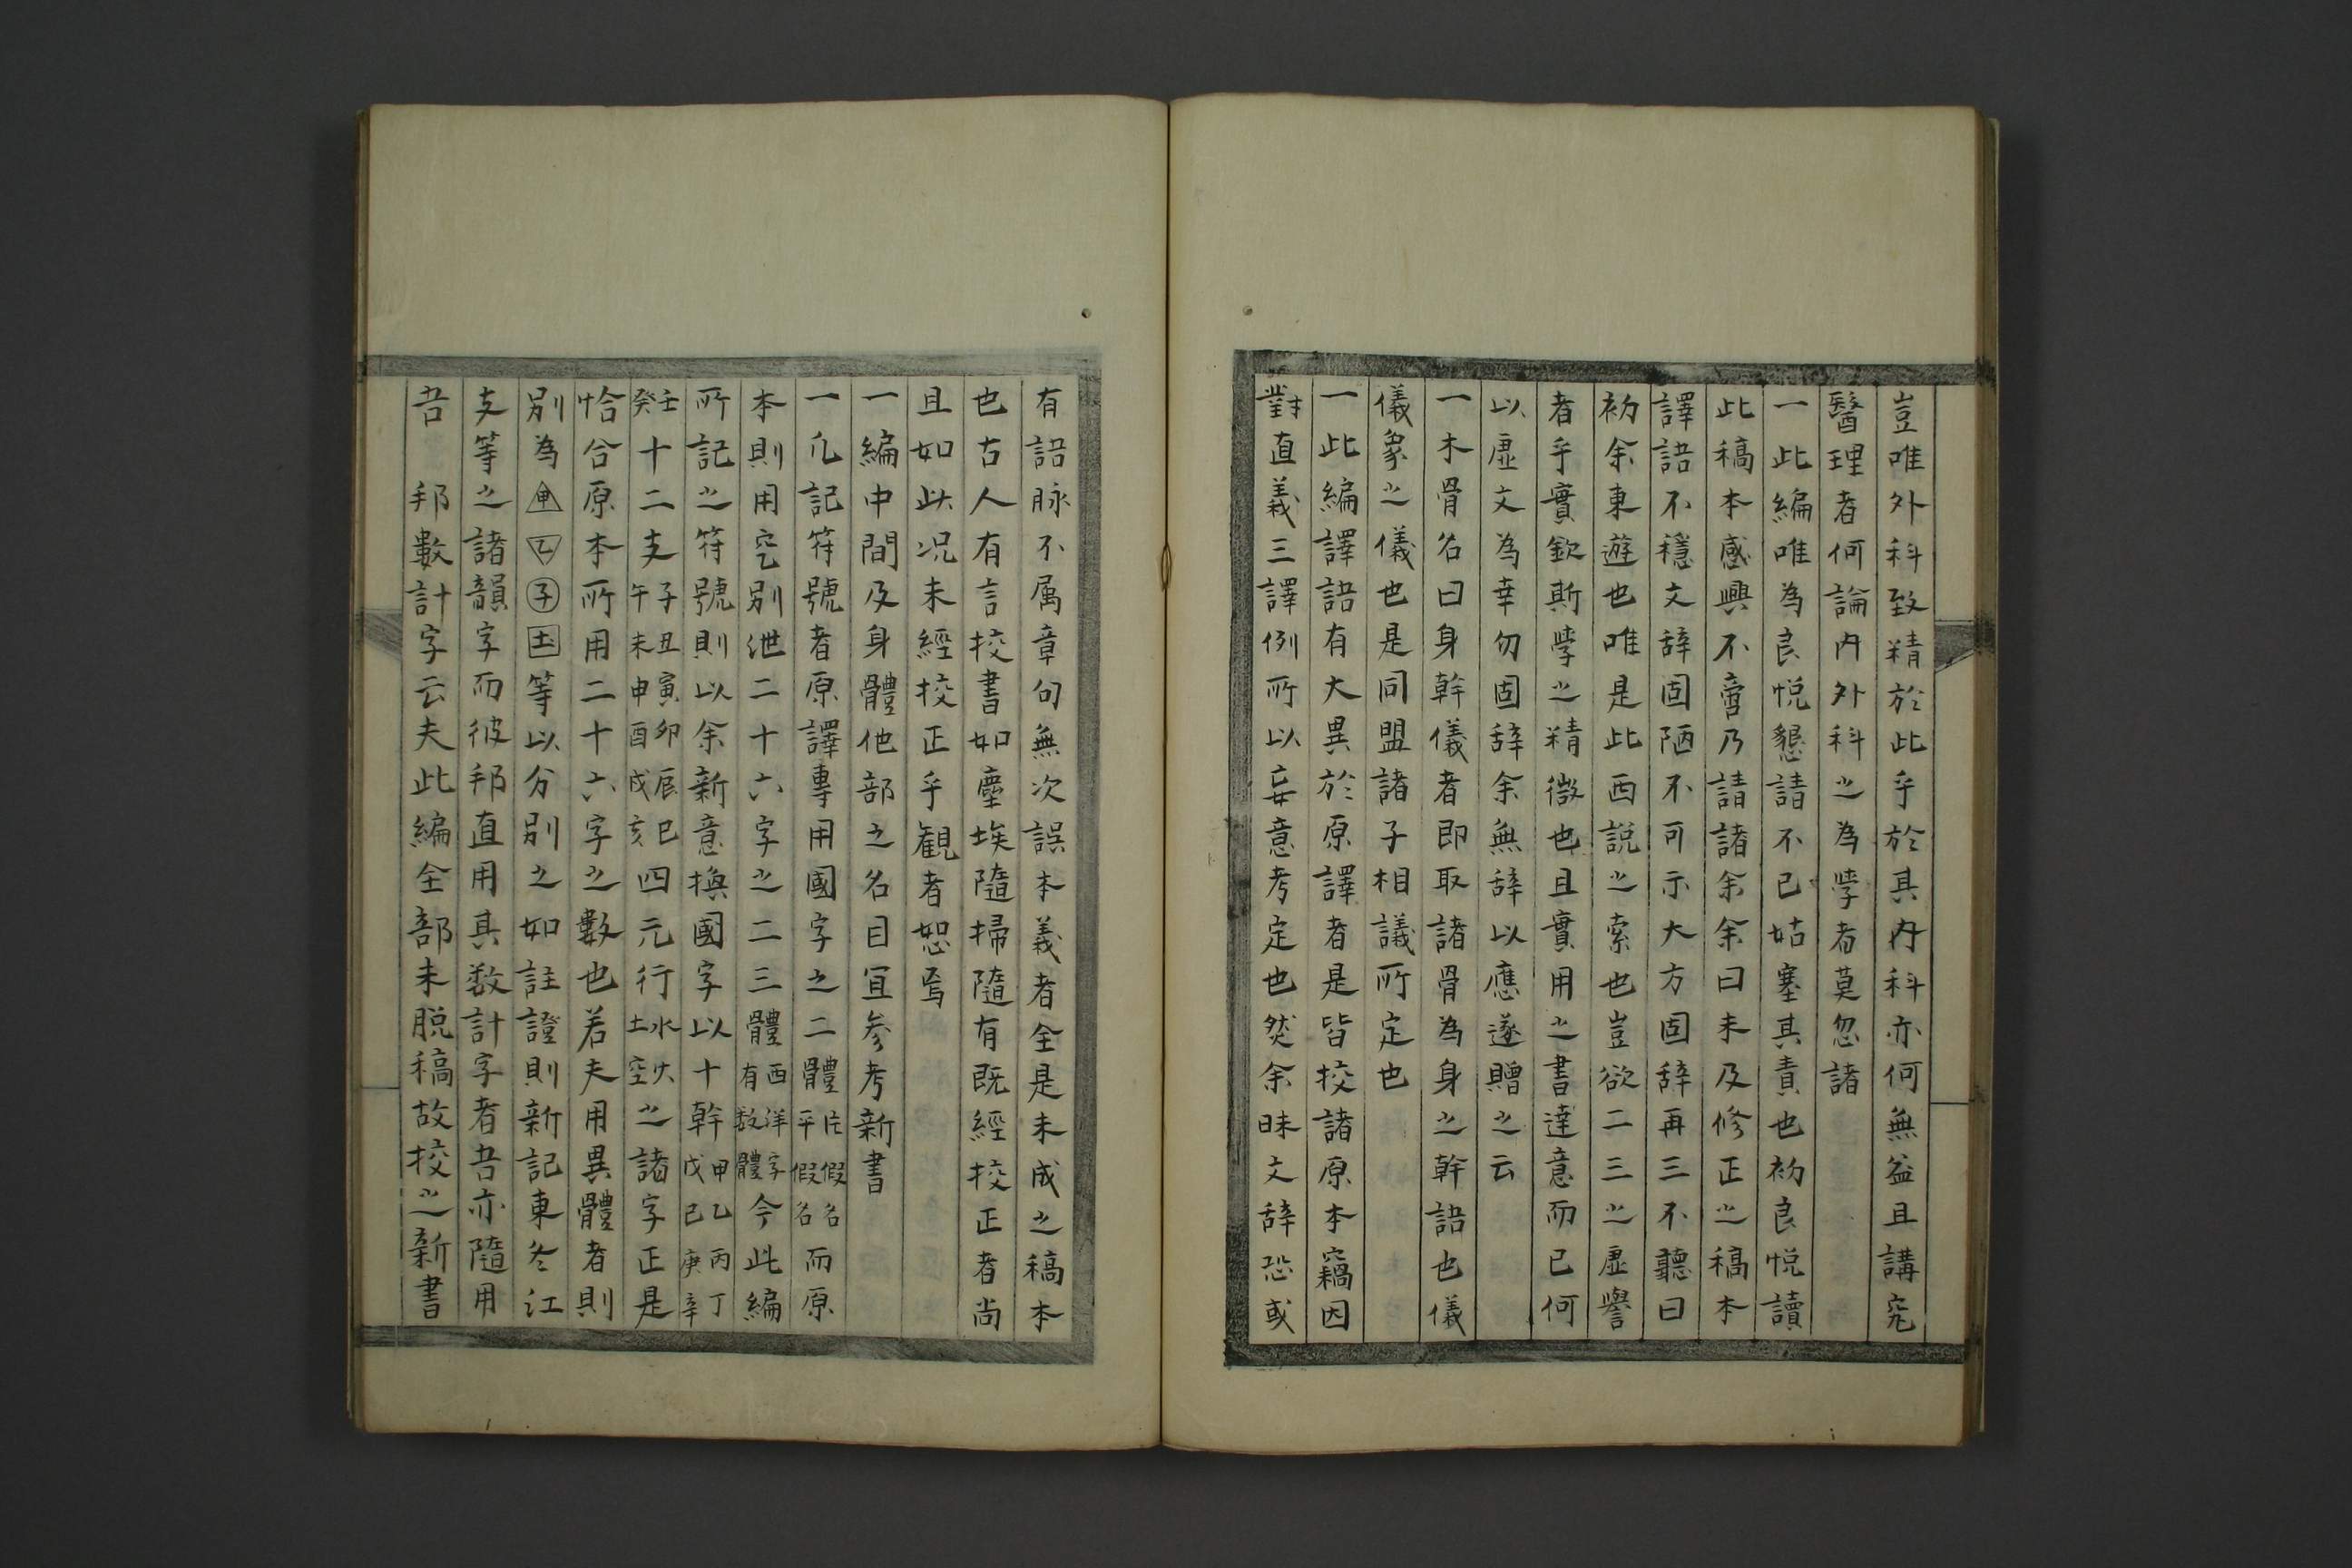 豈唯外科致精於此乎於其内科亦何無益且講究
醫理者何論内外科之為学者莫忽諸
一此編唯為良悦懇請不已姑塞其責也初良悦讀
此稿本感興不啻乃請諸余余曰未及修正之稿本
譯語不穏文辞固陋不可示大方固辞再三不聽曰
初余東遊也唯是此西説之索也豈欲二三之虚譽
者乎實欽斯学之精微也且實用之書達意而已何
以虚文為幸勿固辞余無辞以應遂贈之云
一木骨名曰身幹儀者即取諸骨為身之幹語也儀
儀象之儀也是同盟諸子相議所定也
一此編譯語有大異於原譯者是皆挍諸原本竊因
對直義三譯例所以妄意考定也然余昧文辞恐或
有語脉不属章句無次誤本義者全是未成之稿本
也古人有言挍書如塵埃隨掃隨有既經挍正者尚
且如此况未經挍正乎観者恕焉
一編中間及身體他部之名目宜参考新書
一凡記符號者原譯專用國字之二體片假名平假名而原
本則用窆别泄二十六字之二三體西洋字有数體今此編
所記之符號則以余新意換國字以十幹甲乙丙丁戊己庚辛
壬癸十二支子丑寅卯辰巳午未申酉戌亥四元行水火土空之諸字正是
恰合原本所用二十六字之數也若夫用異體者則
别為甲乙子土等以分别之如註證則新記東冬江
支等之諸韻字而彼邦直用其数計字者吾亦隨用
吾　邦數計字云夫此編全部未脱稿故挍之新書